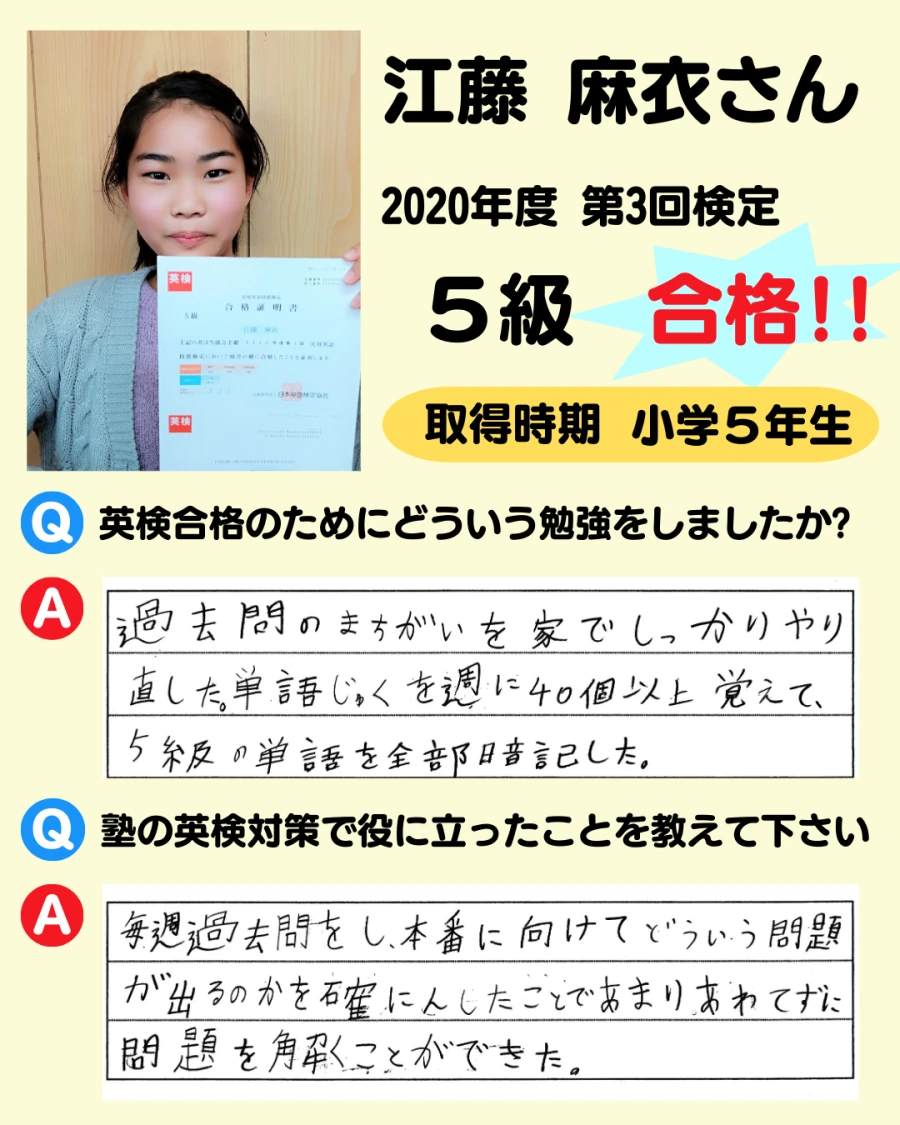 江藤 麻衣さん
2020年度 第3回検定
5級 合格!!
取得時期 小学5年生
英検
合格証明書
5級
日本英語検定協会
英検
Q 英検合格のためにどういう勉強をしましたか?
A
過去問のまちがいを家でしっかりやり
直した。単語じゅくを週に40個以上覚えて、
5級の単語を全部暗記した。
Q 塾の英検対策で役に立ったことを教えて下さい
A
毎週過去問をし、本番に向けてどういう問題
が出るのかを確にんしたことであまりあわてずに
問題を解くことができた。